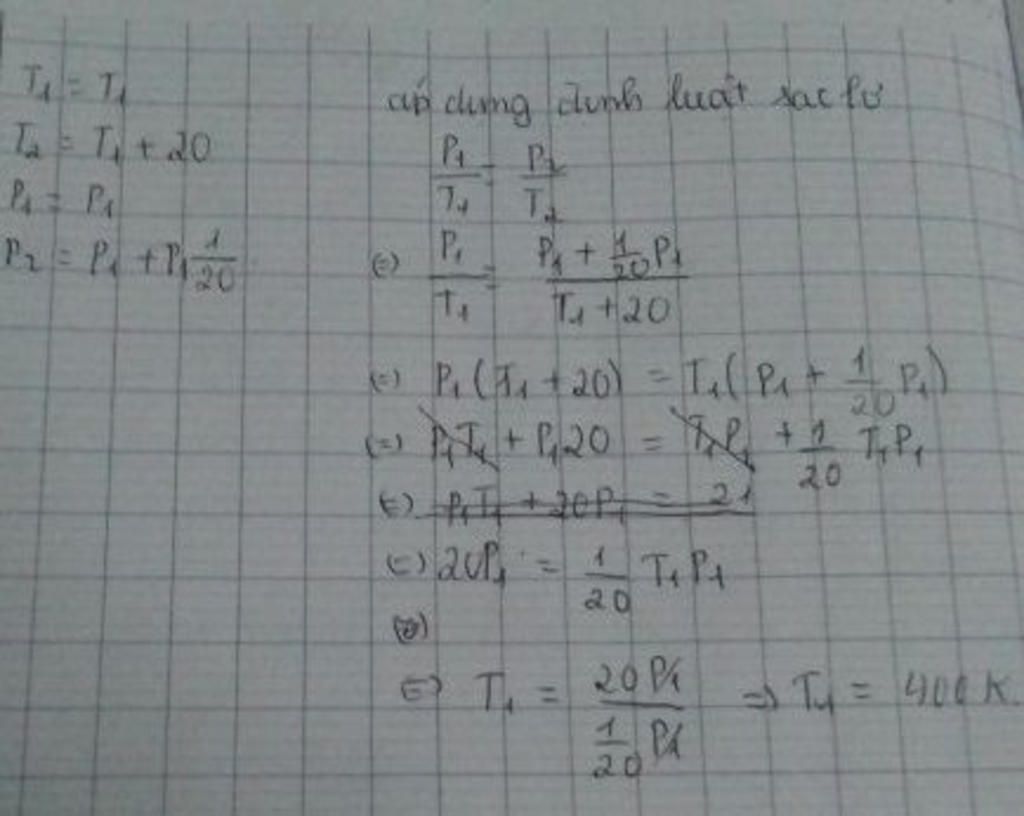 T₁ = T₁
T₂ = T₁ + 20
P₁ = P₁
P₂ = P₁ + P₁ 1/20
áp dụng định luật sac lơ
P₁/T₁ = P₂/T₂
(=) P₁/T₁ = (P₁ + 1/20 P₁)/(T₁ + 20)
(=) P₁(T₁ + 20) = T₁(P₁ + 1/20 P₁)
(=) P₁T₁ + P₁20 = T₁P₁ + 1/20 T₁P₁
(=) P₁T₁ + 20P₁ = 21
(=) 20P₁ = 1/20 T₁P₁
(=) T₁ = 20P₁/(1/20 P₁) => T₁ = 400 K.